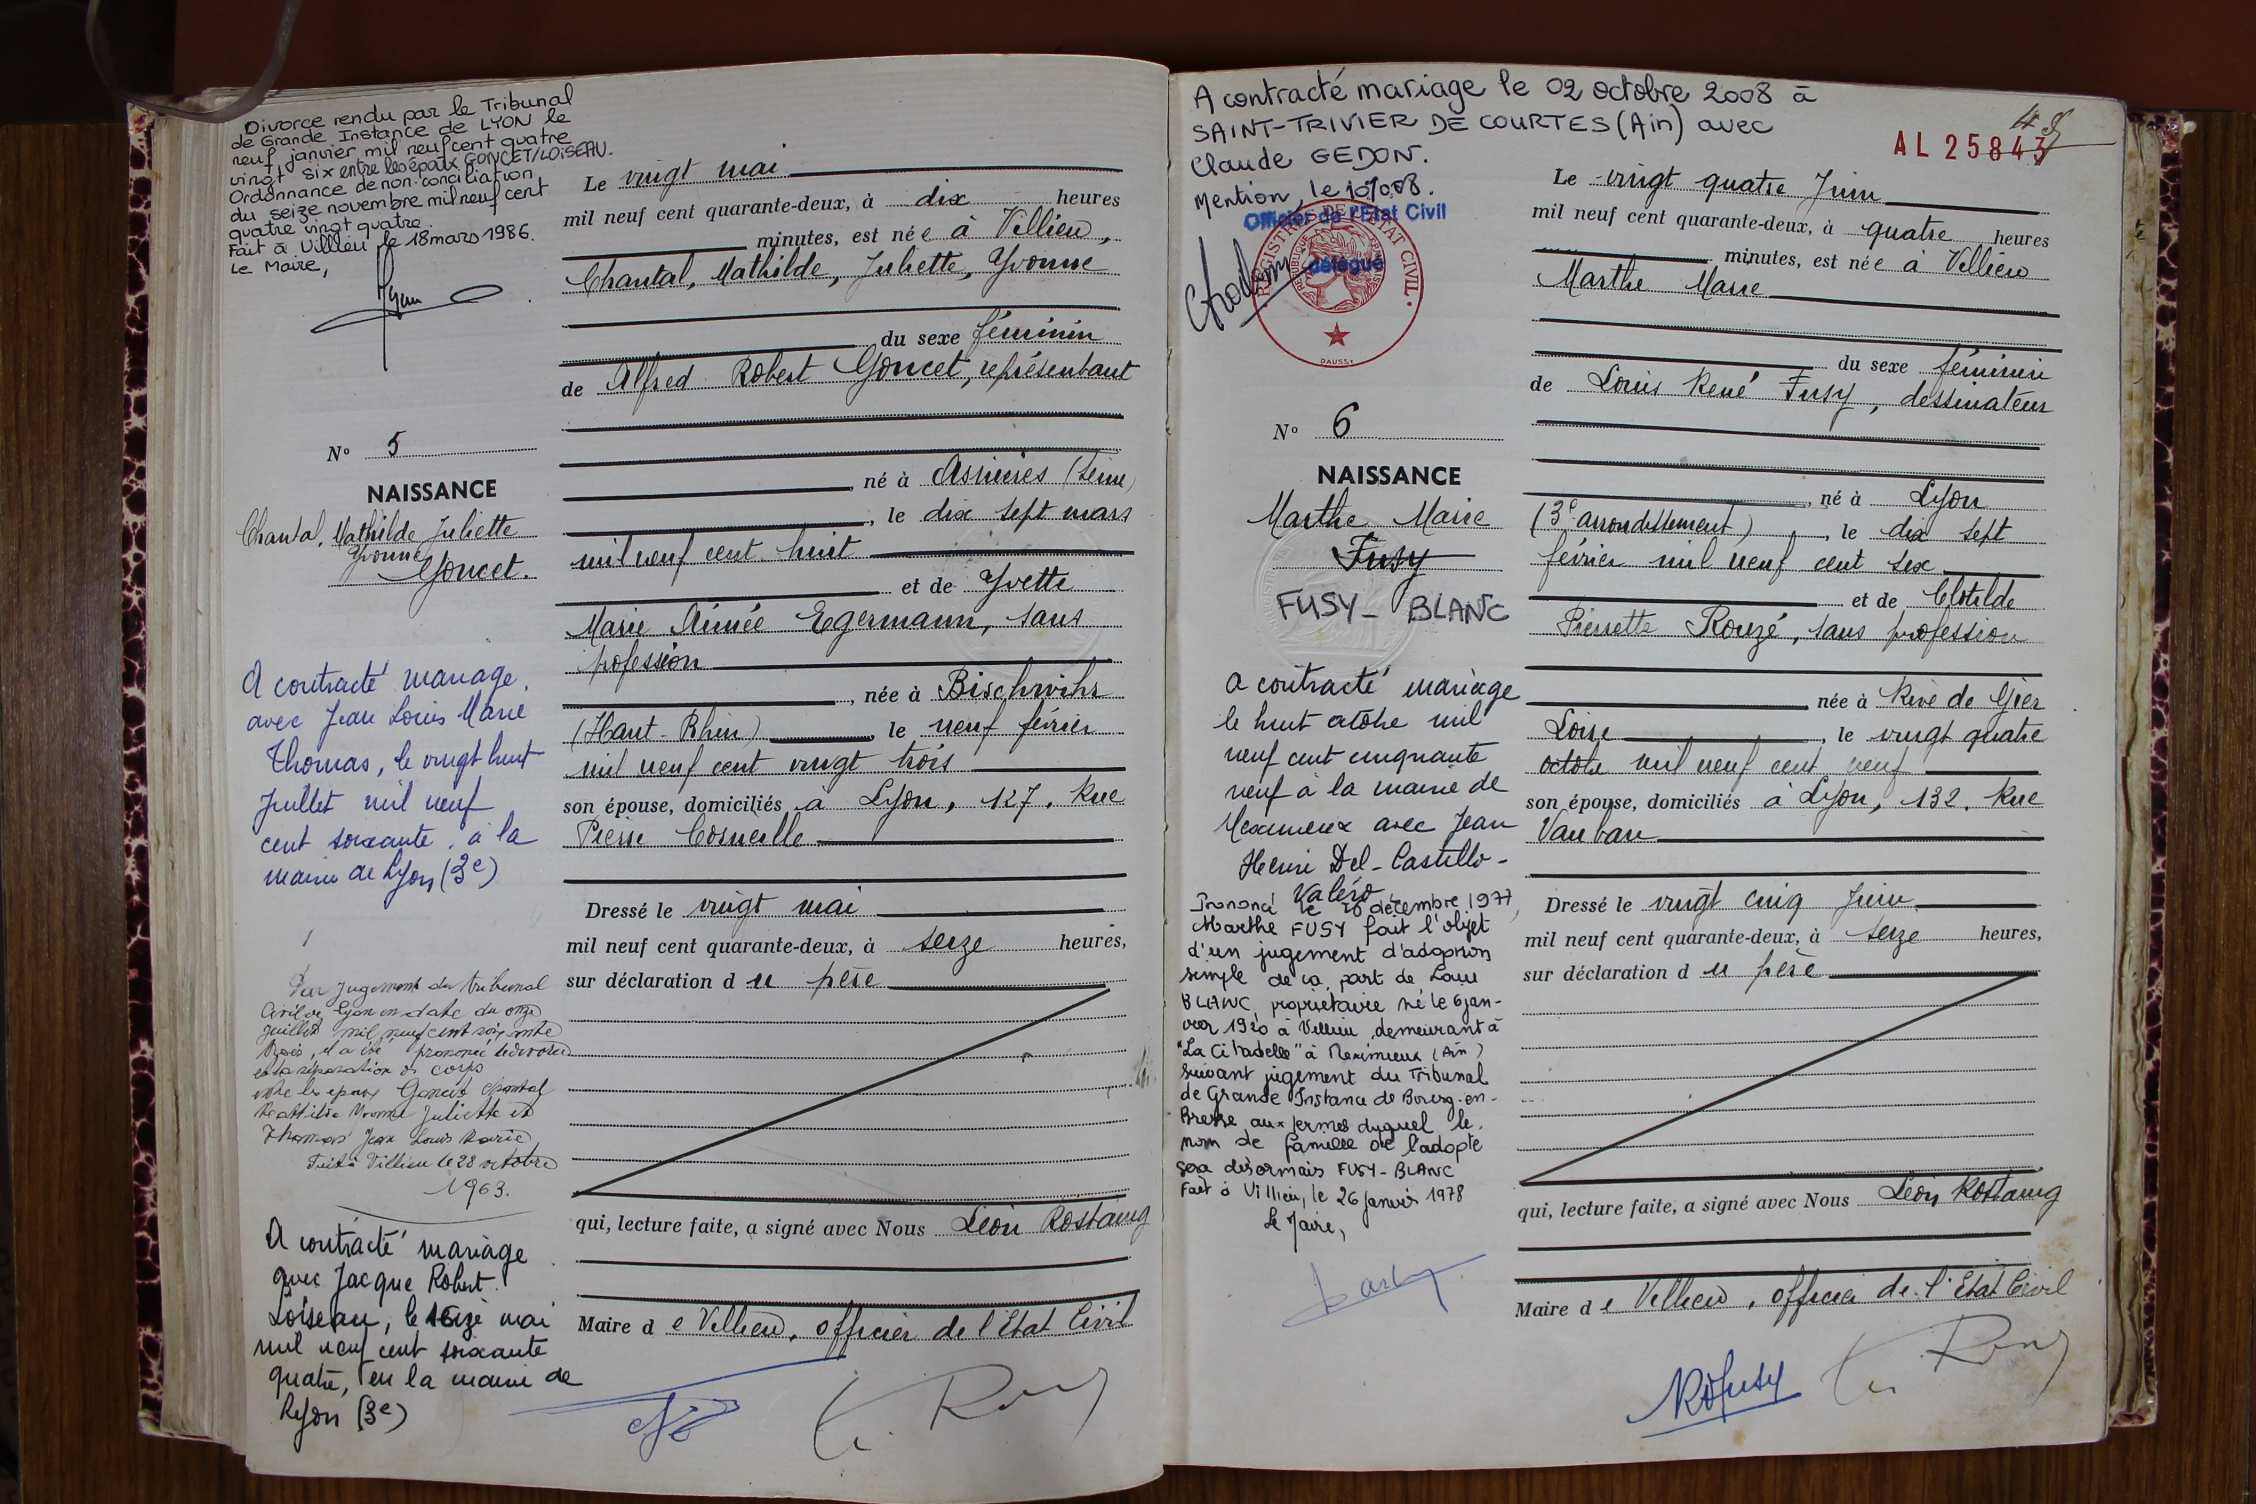 Divorce rendu par le Tribunal
de Grande Instance de LYON le
neuf janvier mil neuf cent quatre
vingt six entre les époux GONCET/LOISEAU.
Ordonnance de non-conciliation
du seize novembre mil neuf cent
quatre vingt quatre
Fait à Villieu le 18 mars 1986.
Le Maire,
N° 5
NAISSANCE
Chantal, Mathilde Juliette
Yvonne
Goncet.
A contracté mariage
avec Jean Louis Marie
Thomas, le vingt huit
Juillet mil neuf
cent soixante, à la
mairie de Lyon (3e)
Par jugement du tribunal
Civil de Lyon en date du onze
juillet mil neuf cent soixante
trois, il a été prononcé le divorce
et la séparation de corps
entre les époux Goncet Chantal
Mathilde Yvonne Juliette et
Thomas Jean Louis Marie
Fait à Villieu le 28 octobre
1963.
A contracté mariage
avec Jacque Robert
Loiseau, le seize mai
mil neuf cent soixante
quatre, en la mairie de
Lyon (3e)
Le vingt mai
mil neuf cent quarante-deux, à dix heures
minutes, est née à Villieu,
Chantal, Mathilde, Juliette, Yvonne
du sexe féminin
de Alfred Robert Goncet, représentant
né à Asnières (Seine)
, le dix sept mars
mil neuf cent huit
et de Yvette
Marie Aimée Egermann, sans
profession
, née à Bischwihr
(Haut-Rhin), le neuf février
mil neuf cent vingt trois
son épouse, domiciliés à Lyon, 127, Rue
Pierre Corneille
Dressé le vingt mai
mil neuf cent quarante-deux, à seize heures,
sur déclaration du père
qui, lecture faite, a signé avec Nous Léon Rostaing
Maire de Villieu, officier de l'Etat Civil
A contracté mariage le 02 octobre 2008 à
SAINT-TRIVIER DE COURTES (Ain) avec
Claude GEDON.
Mention, le
Officier de l'Etat Civil
délégué
REGISTRES DE L'ETAT CIVIL
DAUSSY
AL 25843
N° 6
NAISSANCE
Marthe Marie
Fusy
FUSY - BLANC
A contracté mariage
le huit octobre mil
neuf cent cinquante
neuf à la mairie de
Meximieux avec Jean
Henri Del-Castillo-
Valéro
Prononcé le décembre 1977,
Marthe FUSY fait l'objet
d'un jugement d'adoption
simple de la part de Louis
BLANC, propriétaire né le 6 jan-
vier 1920 à Villieu, demeurant à
"La Citadelle" à Meximieux (Ain)
suivant jugement du Tribunal
de Grande Instance de Bourg-en-
Bresse aux termes duquel le
nom de famille de l'adopté
sera désormais FUSY-BLANC
Fait à Villieu, le 26 janvier 1978
Le Maire,
Le vingt quatre Juin
mil neuf cent quarante-deux, à quatre heures
minutes, est née à Villieu
Marthe Marie
du sexe féminin
de Louis René Fusy, dessinateur
, né à Lyon
(3e arrondissement), le dix sept
février mil neuf cent six
et de Clotilde
Pierrette Rouzé, sans profession
née à Rive de Gier
Loire, le vingt quatre
octobre mil neuf cent neuf
son épouse, domiciliés à Lyon, 132, Rue
Vauban
Dressé le vingt cinq Juin
mil neuf cent quarante-deux, à seize heures,
sur déclaration du père
qui, lecture faite, a signé avec Nous Léon Rostaing
Maire de Villieu, officier de l'Etat Civil